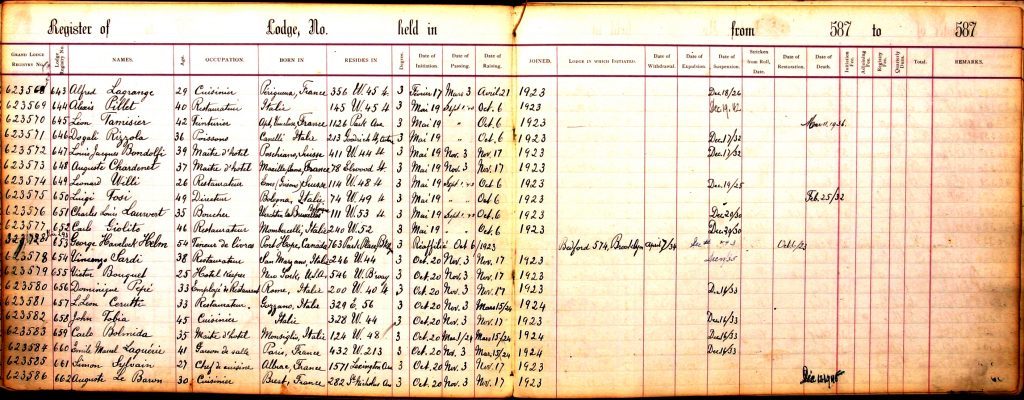 Register of Lodge, No. held in from 587 to 587
GRAND LODGE REGISTRY No. Lodge Registry No. NAMES. Age. OCCUPATION. BORN IN RESIDES IN Degree. Date of Initiation. Date of Passing. Date of Raising. JOINED. LODGE IN WHICH INITIATED. Date of Withdrawal. Date of Expulsion. Date of Suspension. Stricken from Roll, Date. Date of Restoration. Date of Death. Initiation Fee. Adjoining Fee. Registry Fee. Quarterly Dues. Total. REMARKS.
623568 643 Alfred Lagrange 29 Cuisinier France 356 W. 45 3 Février 17 Mars 3 Avril 21 1923 Dec 18/26
623569 644 Alexis Pillet 40 Restaurateur Italie 145 W. 45 3 Mai 19 Sept Oct. 6 1923
623570 645 Léon Tamisier 42 Teinturier France 1126 Park Ave 3 Mai 19 " Oct. 6 1923
623571 646 Dogali Rizzola 36 Poissons Italie 213 3 Mai 19 " Oct. 6 1923 Dec 17/32
623572 647 Louis Jacques Bondolfi 39 Maître d'hotel Poschiavo, Suisse 411 W. 44 3 Mai 19 Nov. 3 Nov. 17 1923 Dec 17/32
623573 648 Auguste Chardenet 37 Maître d'hotel France 78 Elwood St. 3 Mai 19 Nov. 3 Nov. 17 1923
623574 649 Leonard Willi 26 Restaurateur Suisse 114 W. 48 3 Mai 19 Sept Oct. 6 1923 Dec. 19/25
623575 650 Luigi Tosi 49 Directeur Bologna, Italie 74 W. 49 3 Mai 19 " Oct. 6 1923 Feb. 25/32
623576 651 Charles Louis Lauwert 35 Boucher Bruxelles 111 W. 53 3 Mai 19 Sept Oct. 6 1923 Dec 29/30
623577 652 Carlo Giolito 46 Restaurateur Italie 240 W. 52 3 Mai 19 " Oct. 6 1923
653 George Havelock Helm 54 Teneur de livres Port Hope, Canada 763 Park Place, Bklyn 3 Réaffilié Oct 6/1923 Bedford 574, Brooklyn
623578 654 Vincenzo Sardi 38 Restaurateur San Marzano, Italie 246 W. 44 3 Oct. 20 Nov. 3 Nov. 17 1923
623579 655 Victor Bouquet 25 Hotel Keeper New York, U.S.A. 546 W. B'way 3 Oct. 20 Nov. 3 Nov. 17 1923
623580 656 Dominique Pepé 33 Employé de Restaurant Rome, Italie 200 W. 40 3 Oct. 20 Nov. 3 Nov. 17 1923 Dec 14/33
623581 657 L. Léon Cerutti 33 Restaurateur Gozzano, Italie 329 E. 56 3 Oct. 20 Nov. 3 Mars 15/24 1924
623582 658 John Tobia 45 Cuisinier Italie 328 W. 44 3 Oct. 20 Nov. 3 Nov. 17 1923 Dec 14/33
623583 659 Carlo Bolmida 35 Maître d'hotel Monsiglio, Italie 124 W. 48 3 Oct. 20 Mar 1/24 Mars 15/24 1924 Dec 14/33
623584 660 Emile Marcel Laquérie 41 Garçon de salle Paris, France 432 W. 213 3 Oct. 20 Nov. 3 Mar. 15/24 1924 Dec 14/33
623585 661 Simon Sylvain 27 Chef de cuisine France 1571 Lexington Ave 3 Oct. 20 Nov. 3 Nov. 17 1923
623586 662 Auguste Le Baron 30 Cuisinier Brest, France 282 St Nicholas Ave 3 Oct. 20 Nov. 3 Nov. 17 1923